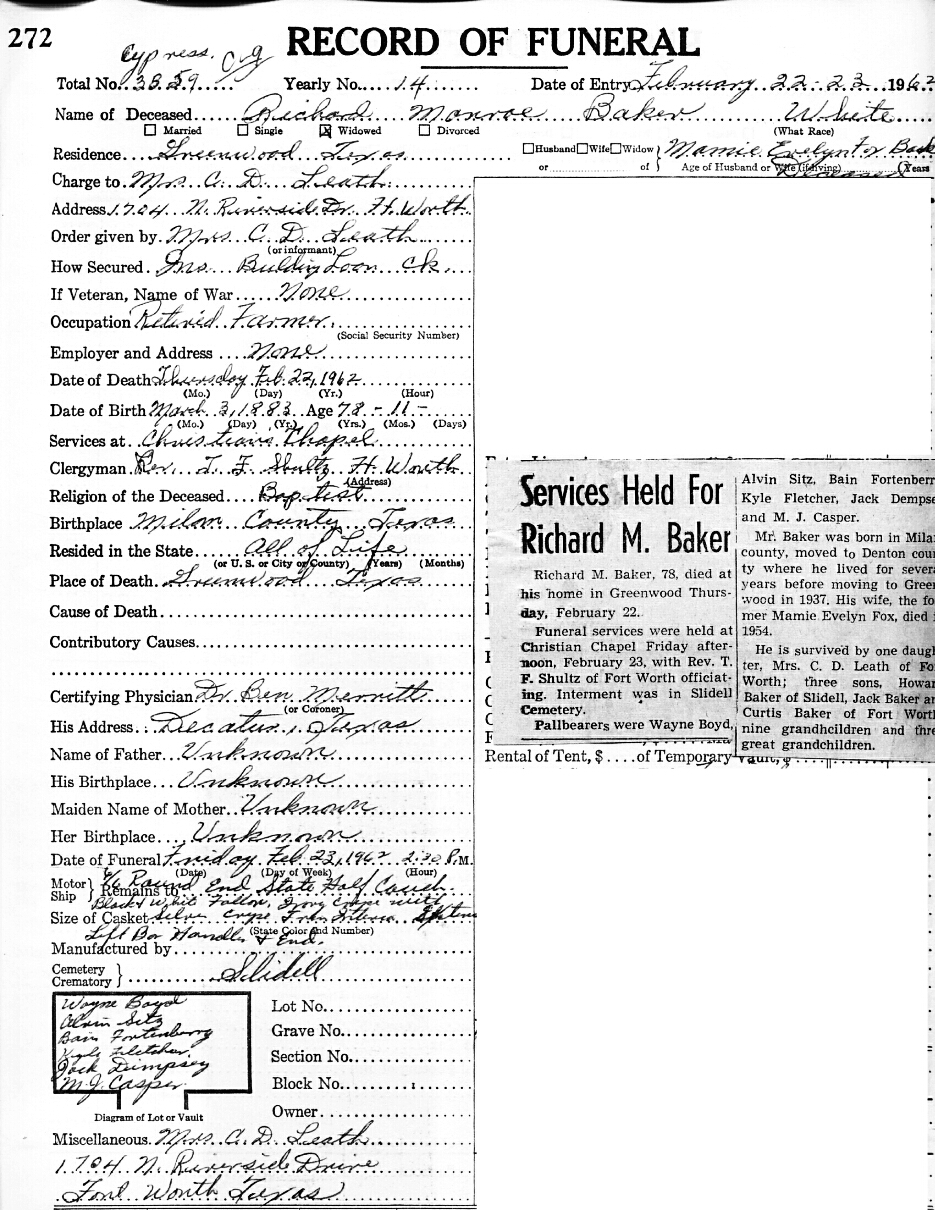 272
RECORD OF FUNERAL
Cypress.
Total No. 3859 Yearly No. 14 Date of Entry February 22-23 1962
Name of Deceased Richard Monroe Baker White
☐ Married ☐ Single ☒ Widowed ☐ Divorced (What Race)
Residence Greenwood Texas ☐Husband☐Wife☐Widow } Mamie Evelyn Fox Bak
or of } Age of Husband or Wife (if living) (Years
Deceased
Charge to Mrs. C. D. Leath
Address 1704 N. Riverside Dr. Ft. Worth
Order given by Mrs C. D. Leath
(or informant)
How Secured Ins. Building Loan ck.
If Veteran, Name of War None
Occupation Retired Farmer.
(Social Security Number)
Employer and Address None
Date of Death Thursday Feb. 22, 1962
(Mo.) (Day) (Yr.) (Hour)
Date of Birth March 3, 1883 Age 78 - 11 -
(Mo.) (Day) (Yr.) (Yrs.) (Mos.) (Days)
Services at Christian Chapel
Clergyman Rev. T. F. Shultz Ft. Worth
(Address)
Religion of the Deceased Baptist
Birthplace Milam County Texas
Resided in the State All of Life
(or U. S. or City or County) (Years) (Months)
Place of Death Greenwood Texas
Cause of Death
Contributory Causes
Certifying Physician Dr. Ben Merritt
(or Coroner)
His Address Decatur, Texas
Name of Father Unknown
His Birthplace Unknown
Maiden Name of Mother Unknown
Her Birthplace Unknown
Date of Funeral Friday Feb. 23, 1962 2:30 P.M.
(Date) (Day of Week) (Hour)
Motor } Remains to
Ship
Round End State Half Couch
Size of Casket Silver Crepe
(State Color and Number)
Handles & End.
Manufactured by
Cemetery
Crematory } Slidell
Wayne Boyd
Alvin Sitz
Bain Fortenberry
Kyle Fletcher.
Jack Dempsey
M. J. Casper
Diagram of Lot or Vault
Lot No.
Grave No.
Section No.
Block No.
Owner
Miscellaneous Mrs. C. D. Leath
1704 N. Riverside Drive
Fort Worth Texas
Services Held For
Richard M. Baker
Richard M. Baker, 78, died at
his home in Greenwood Thurs-
day, February 22.
Funeral services were held at
Christian Chapel Friday after-
noon, February 23, with Rev. T.
F. Shultz of Fort Worth officiat-
ing. Interment was in Slidell
Cemetery.
Pallbearers were Wayne Boyd,
Alvin Sitz, Bain Fortenberr
Kyle Fletcher, Jack Dempse
and M. J. Casper.
Mr. Baker was born in Mila
county, moved to Denton coun
ty where he lived for severa
years before moving to Green
wood in 1937. His wife, the fo
mer Mamie Evelyn Fox, died i
1954.
He is survived by one daugh
ter, Mrs. C. D. Leath of Fo
Worth; three sons, Howar
Baker of Slidell, Jack Baker an
Curtis Baker of Fort Worth
nine grandhcildren and thre
great grandchildren.
Rental of Tent, $ .... of Temporary Vault, $